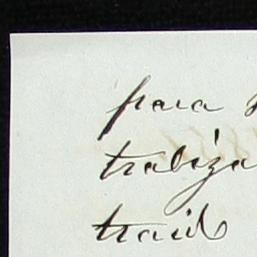 para
trabiza
traid